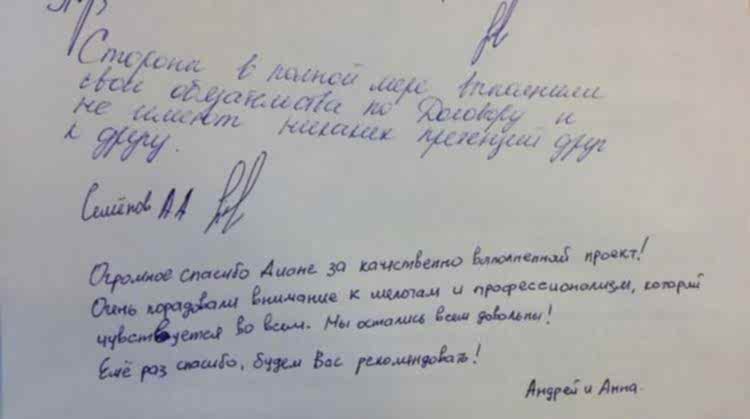 Стороны в полной мере выполнили
свои обязательства по Договору и
не имеют никаких претензий друг
к другу.
Семёнов А А
Огромное спасибо Диане за качественно выполненный проект!
Очень порадовали внимание к мелочам и профессионализм, который
чувствуется во всем. Мы остались всем довольны!
Ещё раз спасибо, будем Вас рекомендовать!
Андрей и Анна.